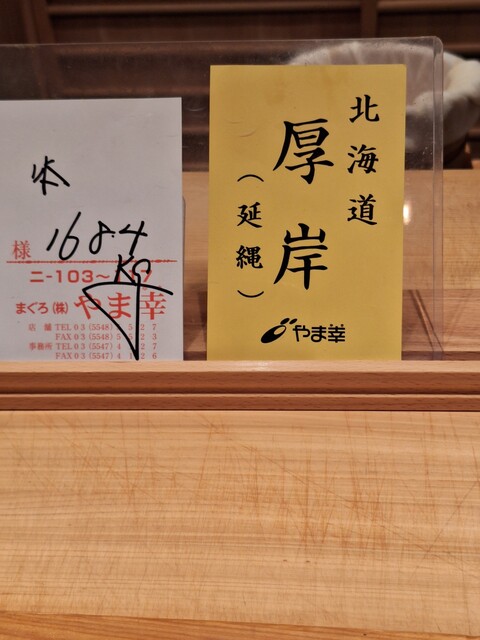 本
168.4
KG
様
ニ-103～
まぐろ(株) やま幸
店舗 TEL 03 (5548)
FAX 03 (5548)
事務所 TEL 03 (5547)
FAX 03 (5547)
北海道
厚岸
(延縄)
やま幸